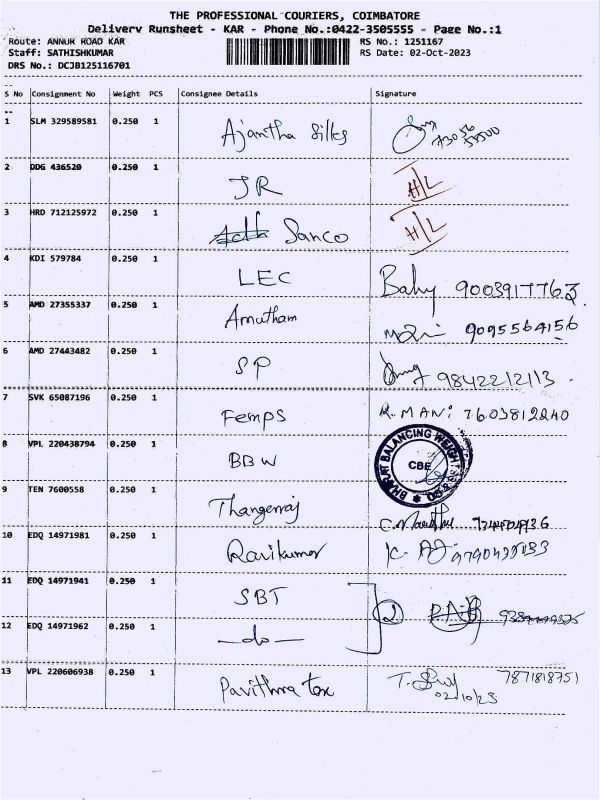 THE PROFESSIONAL COURIERS, COIMBATORE
Delivery Runsheet - KAR - Phone No.:0422-3505555 - Page No.:1
Route: ANNUR ROAD KAR RS No.: 1251167
Staff: SATHISHKUMAR RS Date: 02-Oct-2023
DRS No.: DCJB125116701
S No Consignment No Weight PCS Consignee Details Signature
1 SLM 329589581 0.250 1 Ajantha Silks
2 DDG 436520 0.250 1 JR H/L
3 HRD 712125972 0.250 1 Sanco H/L
4 KDI 579784 0.250 1 LEC Baby 9003917763
5 AMD 27355337 0.250 1 Amutham 9095564156
6 AMD 27443482 0.250 1 SP 9842212113
7 SVK 65087196 0.250 1 Femps R. MANI 7603812240
8 VPL 220438794 0.250 1 BBW BHARAT BALANCING WEIGHT CBE
9 TEN 7600558 0.250 1 Thangerraj
10 EDQ 14971981 0.250 1 Ravikumar
11 EDQ 14971941 0.250 1 SBT
12 EDQ 14971962 0.250 1 -do- 2
13 VPL 220606938 0.250 1 Pavithra tex 7871818751
02/10/23